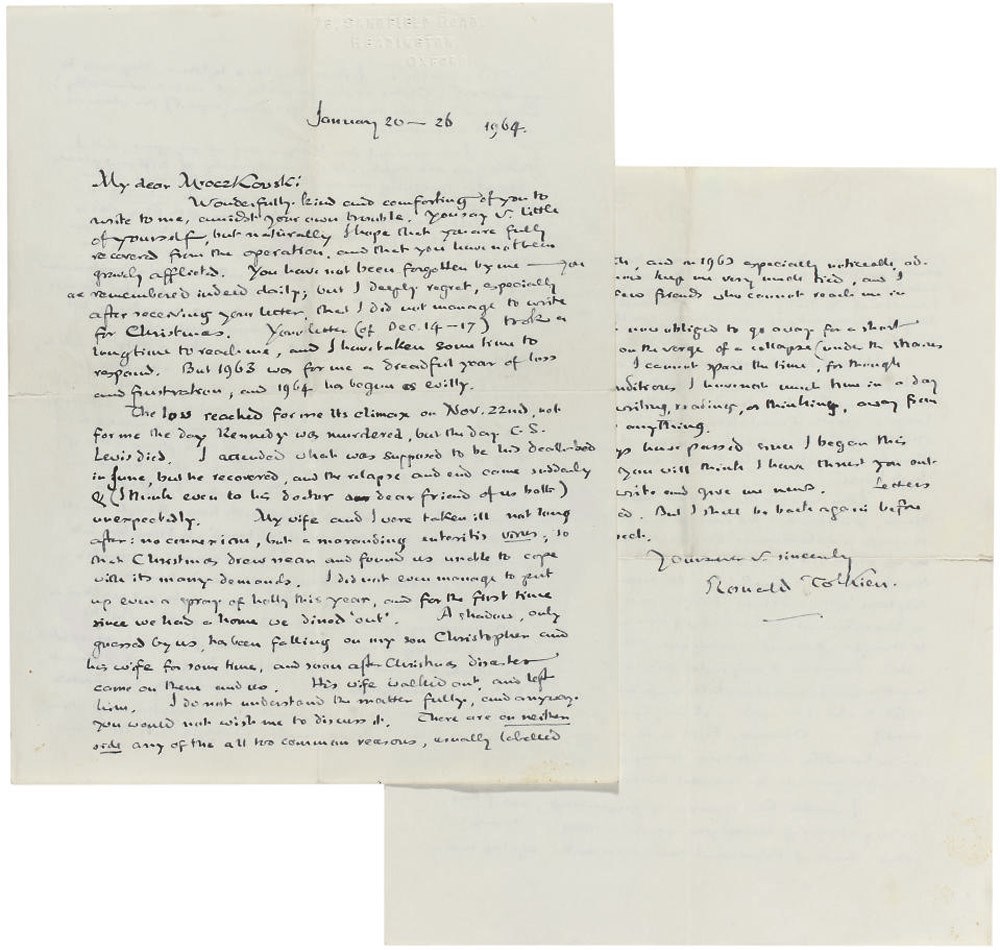 76, SANDFIELD ROAD,
HEADINGTON,
OXFORD.
January 20 — 26 1964.
My dear Mroczkovski:
Wonderfully kind and comforting of you to
write to me, amidst your own trouble. You say v. little
of yourself, but naturally I hope that you are fully
recovered from the operation, and that you have not been
gravely afflicted. You have not been forgotten by me — you
are remembered indeed daily; but I deeply regret, especially
after receiving your letter, that I did not manage to write
for Christmas. Your letter (of Dec. 14–17) took a
long time to reach me, and I have taken some time to
respond. But 1963 was for me a dreadful year of loss
and frustration, and 1964 has begun as evilly.
The loss reached for me its climax on Nov. 22nd, not
for me the day Kennedy was murdered, but the day C. S.
Lewis died. I attended what was supposed to be his death-bed
in June, but he recovered, and the relapse and end came suddenly
& (I think even to his doctor a dear friend of us both)
unexpectedly. My wife and I were taken ill not long
after: no connexion, but a marauding enteritis virus, so
that Christmas drew near and found us unable to cope
with its many demands. I did not even manage to put
up even a spray of holly this year, and for the first time
since we had a home we dined 'out'. A shadow, only
guessed by us, has been falling on my son Christopher and
his wife for some time, and soon after Christmas disaster
came on them and us. His wife walked out, and left
him. I do not understand the matter fully, and anyway
you would not wish me to discuss it. There are on neither
side any of the all too common reasons, usually labelled
and in 1963 especially noticeably, ad-
keep me very much tied, and I
few friends who cannot reach me in
now obliged to go away for a short
on the verge of a collapse (under the strains
I cannot spare the time, for though
I have not much time in a day
writing, reading, or thinking, away from
anything.
have passed since I began this
you will think I have thrust you out
write and give me news. Letters
But I shall be back again before
Yours ever v. sincerely
Ronald Tolkien.